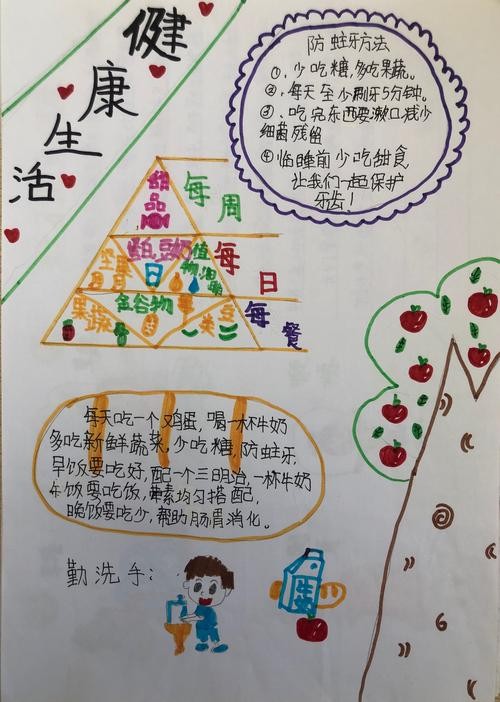 健康生活
防蛀牙方法
①.少吃糖,多吃果蔬。
②.每天至少刷牙5分钟。
③.吃完东西要漱口,减少
细菌残留
④临睡前少吃甜食,
让我们一起保护
牙齿!
甜品
每周
坚果
蛋白
豆奶
植物油
每日
果蔬
全谷物
豆类
每餐
每天吃一个鸡蛋,喝一杯牛奶
多吃新鲜蔬菜,少吃糖,防蛀牙,
早饭要吃好,配一个三明治,一杯牛奶
午饭要吃饭,荤素均匀搭配,
晚饭要吃少,帮助肠胃消化。
勤洗手:
牛奶